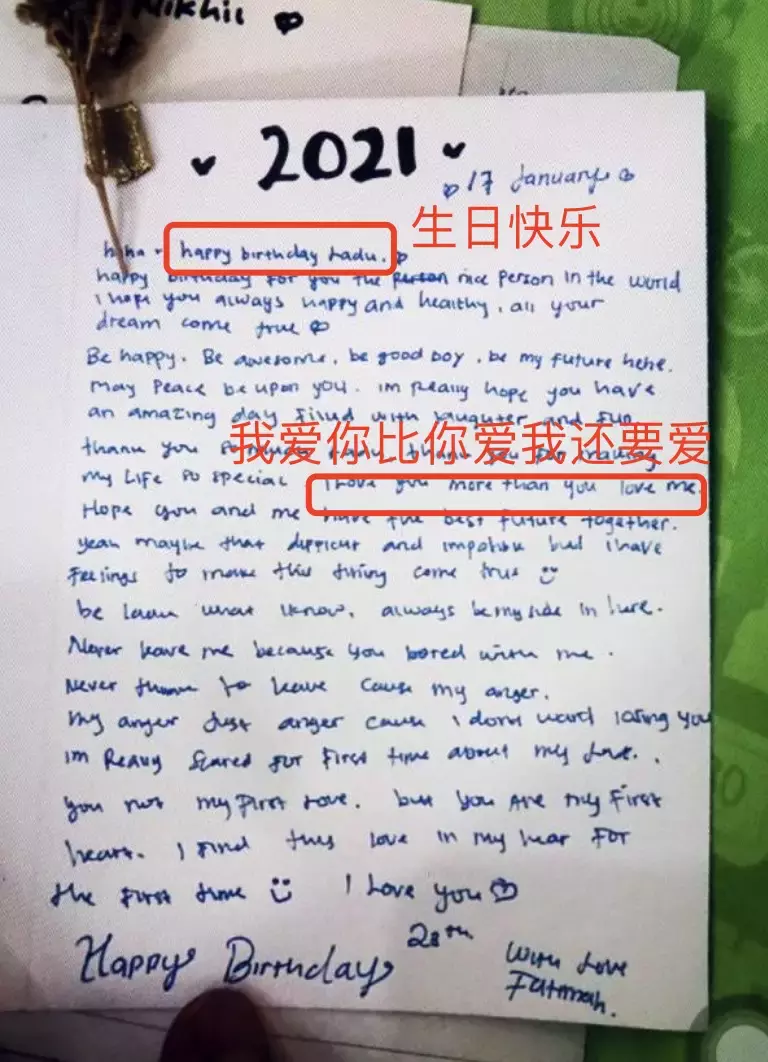 Nikhil
2021
17 January
生日快乐
haha happy birthday Ladu.
happy birthday for you the person nice person in the world
i hope you always happy and healthy, all your
dream come true
Be happy. Be awesome, be good boy, be my future hehe.
may Peace be upon you. im really hope you have
an amazing day filled with laughter and fun
我爱你比你爱我还要爱
thank you so much thank you for making
my Life so special I love you more than you love me.
Hope you and me have the best future together.
yeah maybe that difficult and but i have
Feelings to make this thing come true
be what i know, always be my side in
Never leave me because you bored with me.
Never to leave cause my anger.
my anger just anger cause i dont want losing you
im Really scared for first time about my love..
you not my first Love. but you are my first
heart. I find this love in my hear for
the first time I Love you
28th
Happy Birthday
With Love
Fatimah.